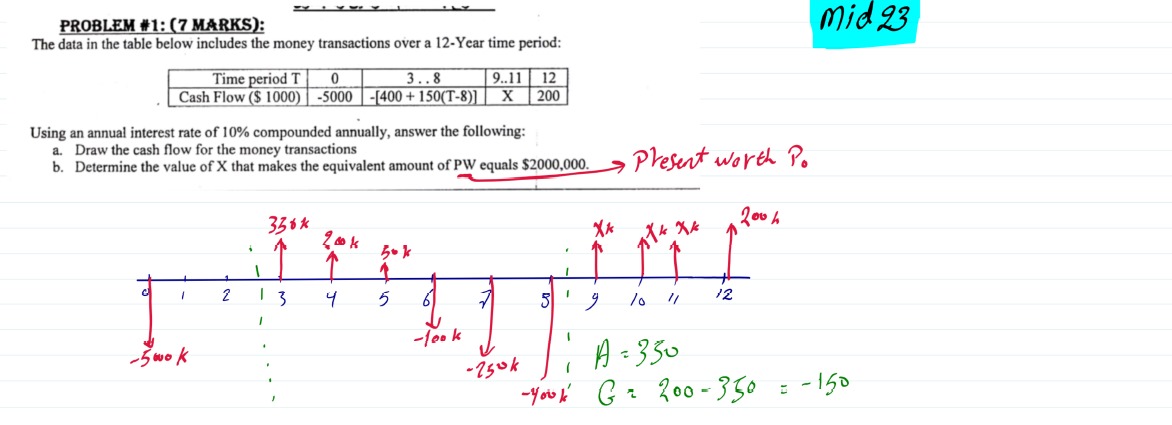 mid 23
PROBLEM #1: (7 MARKS):
The data in the table below includes the money transactions over a 12-Year time period:
Time period T 0 3..8 9..11 12
Cash Flow ($ 1000) -5000 -[400 + 150(T-8)] X 200
Using an annual interest rate of 10% compounded annually, answer the following:
a. Draw the cash flow for the money transactions
b. Determine the value of X that makes the equivalent amount of PW equals $2000,000. → Present worth P.
350k 200k 50k Xk Xk Xk 200k
0 1 2 3 4 5 6 7 8 9 10 11 12
-5000k -100k -250k -400k
A = 350
G = 200 - 350 = -150